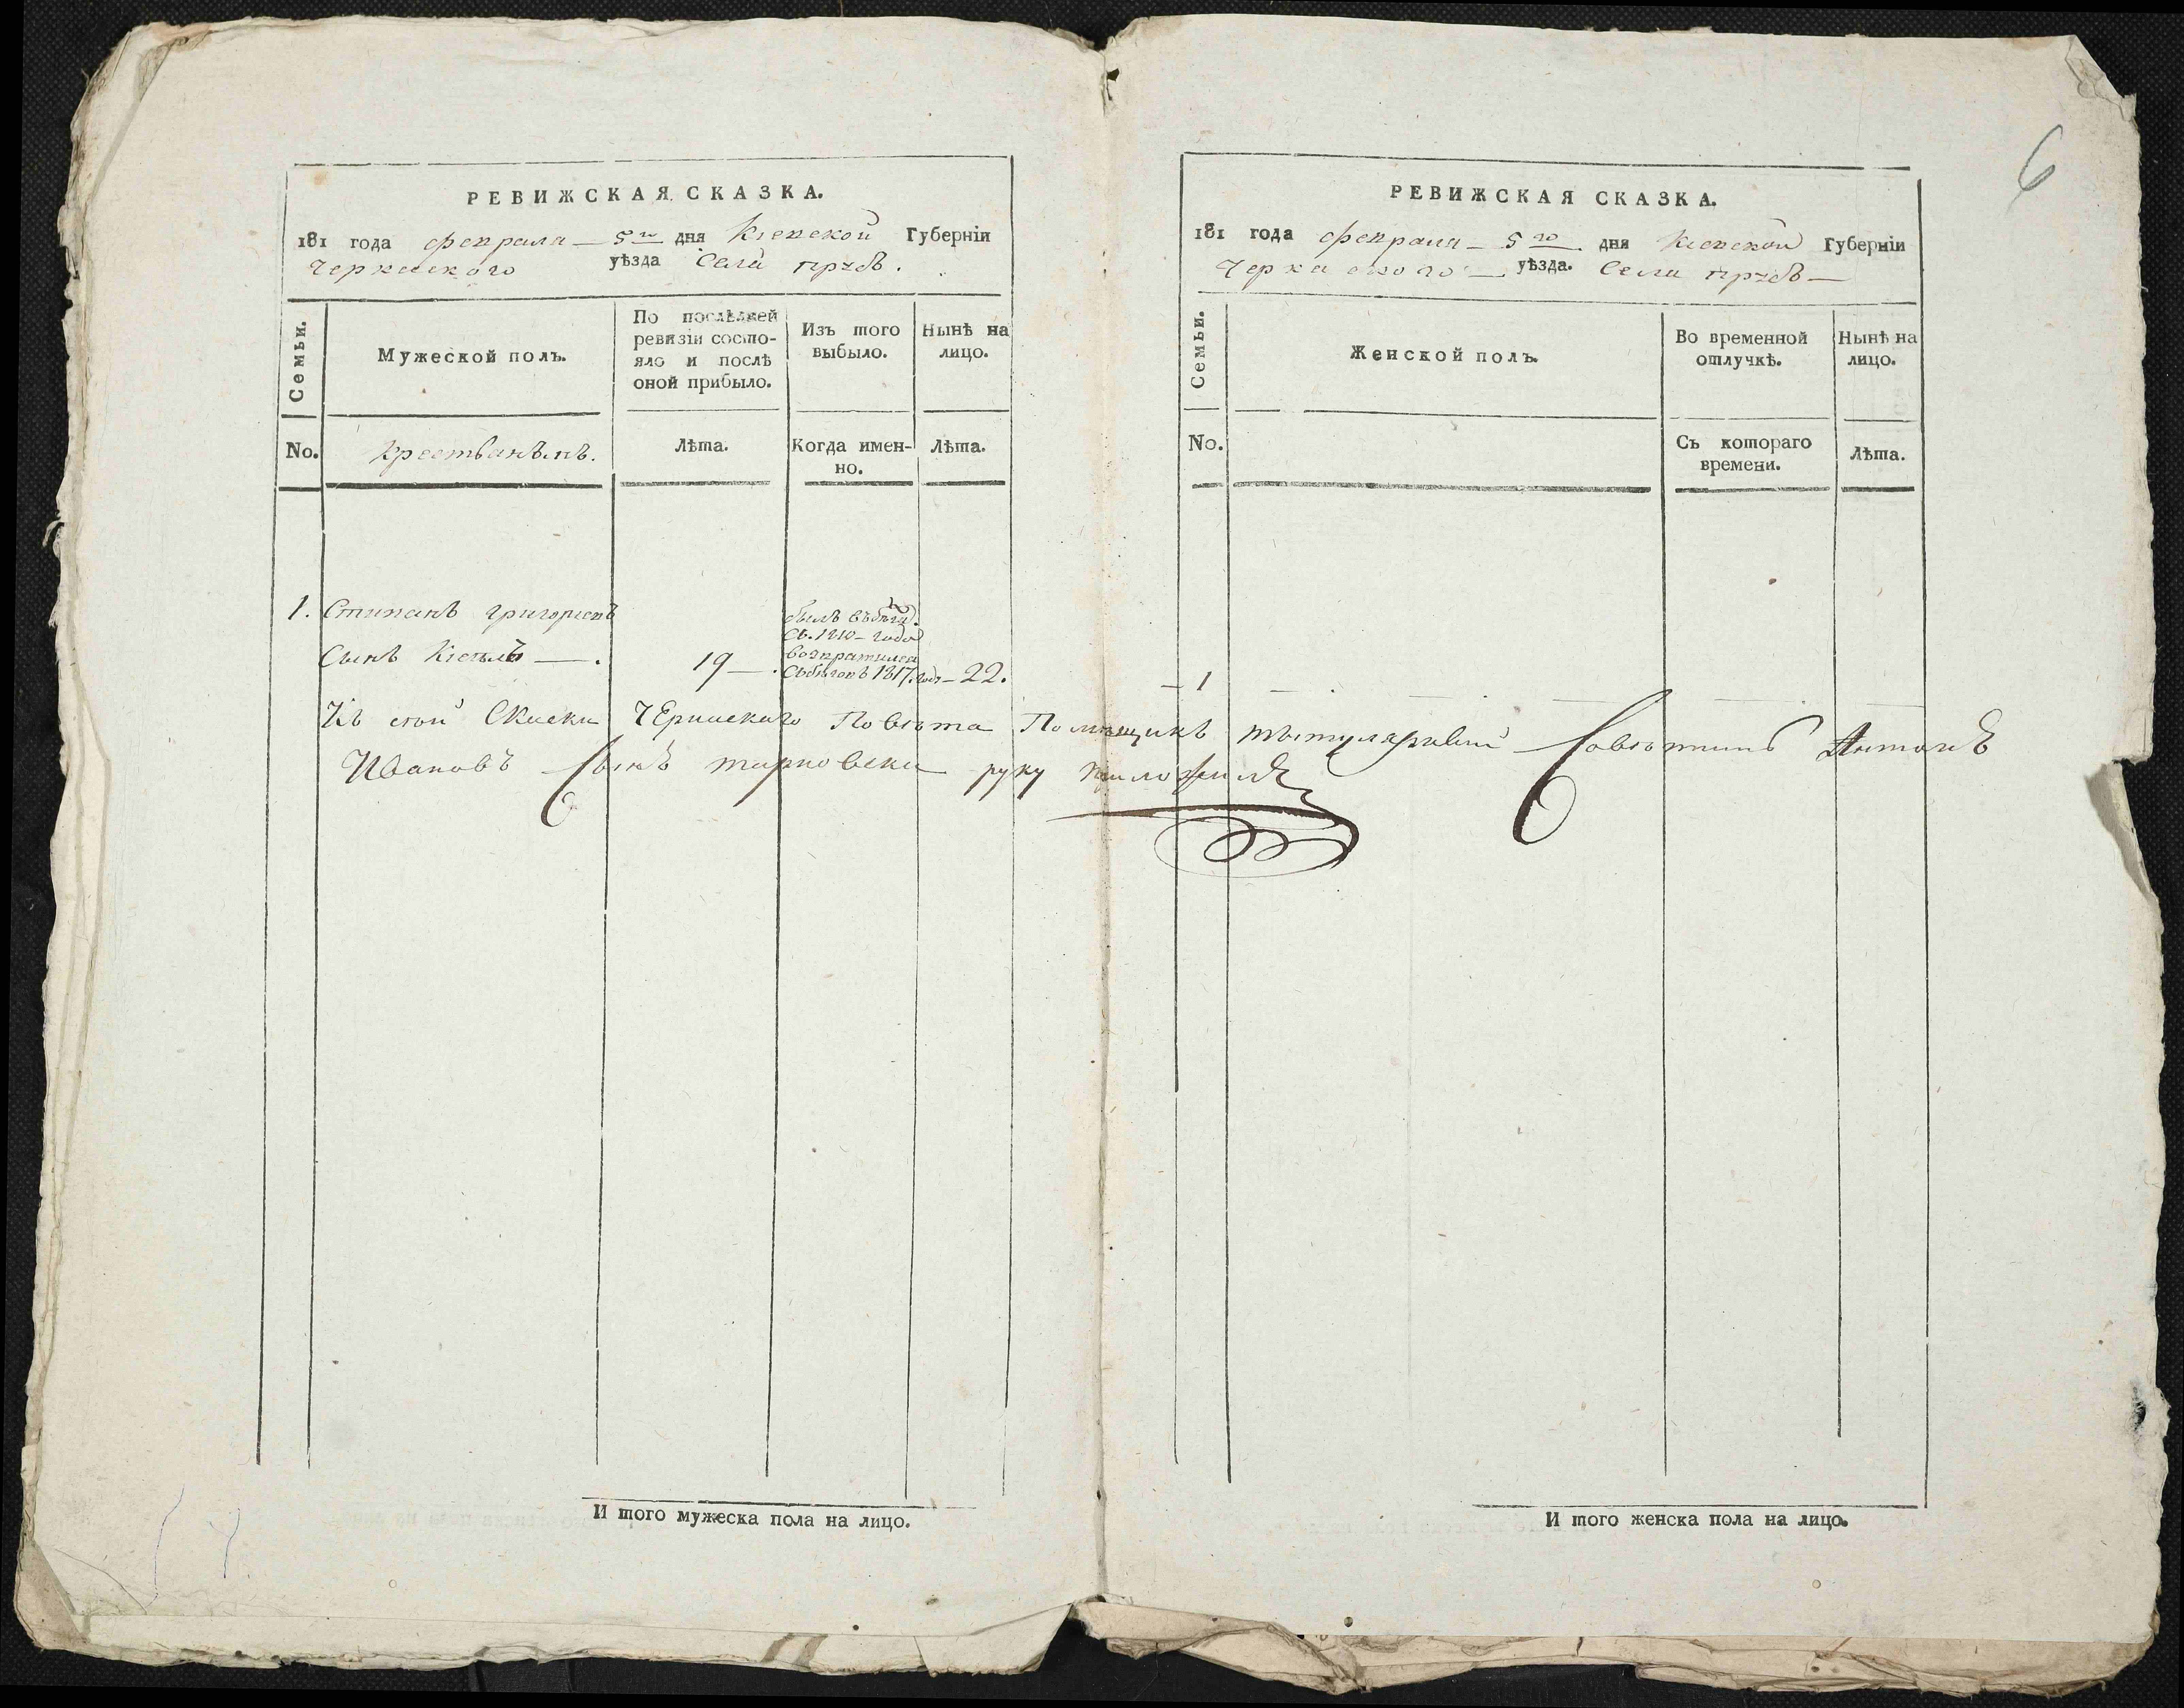 РЕВИЖСКАЯ СКАЗКА.
181 года февраля — 5го дня Кіевской Губерніи
Черкаского уѣзда Села
Семьи.
Мужеской полъ.
По послѣдней ревизіи состояло и послѣ оной прибыло.
Изъ того выбыло.
Нынѣ на лицо.
No.
Лѣта.
Когда именно.
Лѣта.
1. Степанъ григориевъ
былъ въбѣгу.
съ. 1810 - года
возвратился
Сынъ 19 — . 1817. 22.
РЕВИЖСКАЯ СКАЗКА.
6
181 года февраля — 5го дня Кіевской Губерніи
Черкаского — уѣзда. Села
Семьи.
Женской полъ.
Во временной отлучкѣ.
Нынѣ на лицо.
No.
Съ котораго времени.
Лѣта.
— 1
Къ сей Скаски Повѣта Помѣщикъ титулярный Совѣтникъ Антонъ
Ивановъ Сынъ тарновски руку приложилъ
И того мужеска пола на лицо.
И того женска пола на лицо.